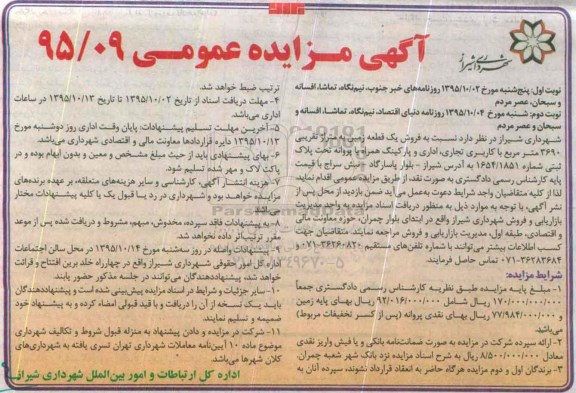 شهرداری شیراز
آگهی مزایده عمومی ۹۵/۰۹
نوبت اول: پنج‌شنبه مورخ ۱۳۹۵/۱۰/۰۲ روزنامه‌های خبر جنوب، نیم‌نگاه، تماشا، افسانه
و سبحان، عصر مردم
نوبت دوم: شنبه مورخ ۱۳۹۵/۱۰/۰۴ روزنامه دنیای اقتصاد، نیم‌نگاه، تماشا، افسانه و
سبحان و عصر مردم
شهرداری شیراز در نظر دارد نسبت به فروش یک قطعه زمین به متراژ تقریبی
۳۶۹۰ متر مربع با کاربری تجاری، اداری و پارکینگ همراه با پروانه تحت پلاک
ثبتی شماره ۱۶۵۴/۱۸۵۱ به آدرس شیراز - بلوار پاسارگاد - نبش سراج با قیمت
پایه کارشناس رسمی دادگستری به صورت نقد، از طریق مزایده عمومی اقدام نماید.
لذا از کلیه متقاضیان واجد شرایط دعوت به‌عمل می‌آید ضمن بازدید از محل پس از
نشر آگهی، با توجه به موارد ذیل به منظور دریافت اسناد مزایده به واحد مدیریت
بازاریابی و فروش شهرداری شیراز واقع در ابتدای بلوار چمران، حوزه معاونت مالی
و اقتصادی، طبقه اول، مدیریت بازاریابی و فروش مراجعه نمایند. متقاضیان جهت
کسب اطلاعات بیشتر می‌توانند با شماره تلفن‌های مستقیم ۳۶۲۶۰۸۲۰-۰۷۱ و
۳۶۲۸۳۶۸۴-۰۷۱ تماس حاصل فرمایند.
شرایط مزایده:
۱- مبلغ پایه مزایده طبق نظریه کارشناس رسمی دادگستری جمعاً
۱۷۰/۰۰۰/۰۰۰/۰۰۰ ریال شامل ۹۲/۰۱۶/۰۰۰/۰۰۰ ریال بهای پایه زمین
و ۷۷/۹۸۴/۰۰۰/۰۰۰ ریال بهای نقدی پروانه (پس از کسر تخفیفات مربوط)
می‌باشد.
۲- ارائه سپرده شرکت در مزایده به صورت ضمانت‌نامه بانکی و یا فیش واریز نقدی
معادل ۸/۵۰۰/۰۰۰/۰۰۰ ریال به شرح اسناد مزایده نزد بانک شهر شعبه چمران.
۳- برندگان اول و دوم مزایده هرگاه حاضر به انعقاد قرارداد نشوند، سپرده آنان به
ترتیب ضبط خواهد شد.
۴- مهلت دریافت اسناد از تاریخ ۱۳۹۵/۱۰/۰۲ تا تاریخ ۱۳۹۵/۱۰/۱۳ در ساعات
اداری می‌باشد.
۵- آخرین مهلت تسلیم پیشنهادات: پایان وقت اداری روز دوشنبه مورخ
۱۳۹۵/۱۰/۱۳ دایره قراردادها معاونت مالی و اقتصادی شهرداری می‌باشد.
۶- بهای پیشنهادی باید از حیث مبلغ مشخص و معین و بدون ابهام بوده و در
پاکت لاک و مهر شده تسلیم شود.
۷- هزینه انتشار آگهی، کارشناسی و سایر هزینه‌های متعلقه، بر عهده برنده‌های
مزایده خواهد بود و شهرداری در رد یا قبول یک یا کلیه پیشنهادات مختار
است.
۸- به پیشنهادات فاقد سپرده، مخدوش، مبهم، مشروط و دریافت شده پس از موعد
مقرر ترتیب‌اثر داده نخواهد شد.
۹- پیشنهادات واصله در روز سه‌شنبه مورخ ۱۳۹۵/۱۰/۱۴ در محل سالن اجتماعات
اداره کل امور حقوقی شهرداری شیراز واقع در چهارراه خلد برین افتتاح و قرائت
خواهد شد، پیشنهاددهندگان می‌توانند در جلسه مذکور حضور یابند.
۱۰- سایر جزئیات و شرایط در اسناد مزایده پیش‌بینی شده است و پیشنهاددهندگان
باید یک نسخه از آن را دریافت و با قید قبولی امضاء کرده و به پیشنهاد خود
ضمیمه و تسلیم نمایند.
۱۱- شرکت در مزایده و دادن پیشنهاد به منزله قبول شروط و تکالیف شهرداری
موضوع ماده ۱۰ آیین‌نامه معاملات شهرداری تهران تسری یافته به شهرداری‌های
کلان شهرها می‌باشد.
اداره کل ارتباطات و امور بین‌الملل شهرداری شیراز